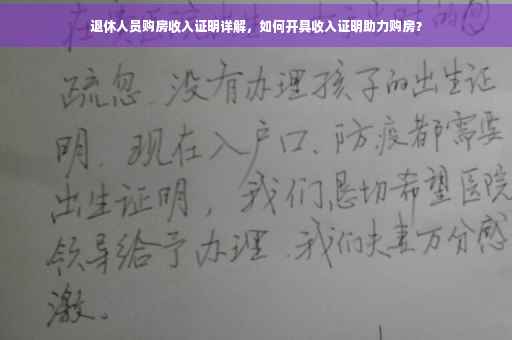 退休人员购房收入证明详解，如何开具收入证明助力购房？
疏忽、没有办理孩子的出生证
明、现在入户口、防疫都需要
出生证明，我们恳切希望医院
领导给予办理、我们夫妻万分感
激。